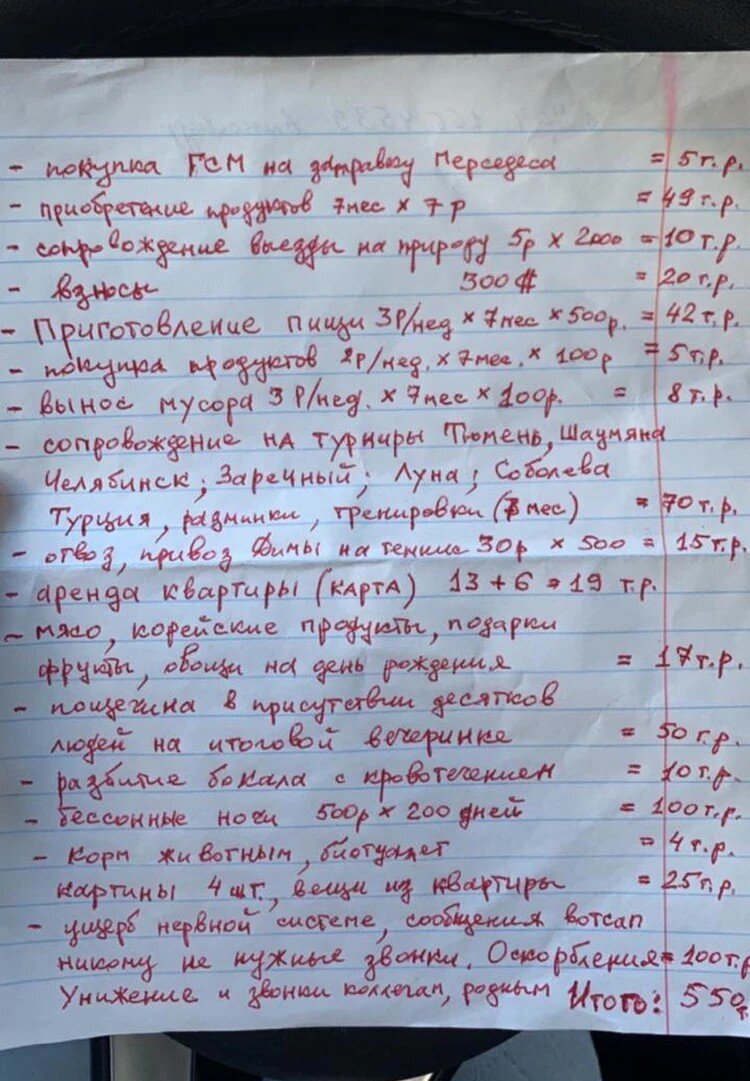 - покупка ГСМ на заправку Мерседеса = 5 т.р.
- приобретение продуктов 7 мес х 7 р = 49 т.р.
- сопровождение выезды на природу 5р х 2000 = 10 т.р.
- взносы 300 $ = 20 т.р.
- Приготовление пищи 3Р/нед х 7 мес х 500р. = 42 т.р.
- покупка продуктов 2р/нед. х 7 мес. х 100р = 5 т.р.
- вынос мусора 3 Р/нед. х 7 мес х 100р. = 8 т.р.
- сопровождение на турниры Тюмень, Шаумяна
Челябинск; Заречный; Луна; Соболева
Турция, разминки, тренировки (7 мес) = 70 т.р.
- отвоз, привоз Димы на теннис 30р х 500 = 15 т.р.
- аренда квартиры (карта) 13 + 6 = 19 т.р.
- мясо, корейские продукты, подарки
фрукты, овощи на день рождения = 17 т.р.
- пощечина в присутствии десятков
людей на итоговой вечеринке = 50 т.р.
- разбитие бокала с кровотечением = 10 т.р.
- бессонные ночи 500р х 200 дней = 100 т.р.
- корм животным, биотуалет = 4 т.р.
картины 4 шт., вещи из квартиры = 25 т.р.
- ущерб нервной системе, сообщения вотсап
никому не нужные звонки. Оскорбления = 100 т.р
Унижение и звонки коллегам, родным Итого: 550 т.